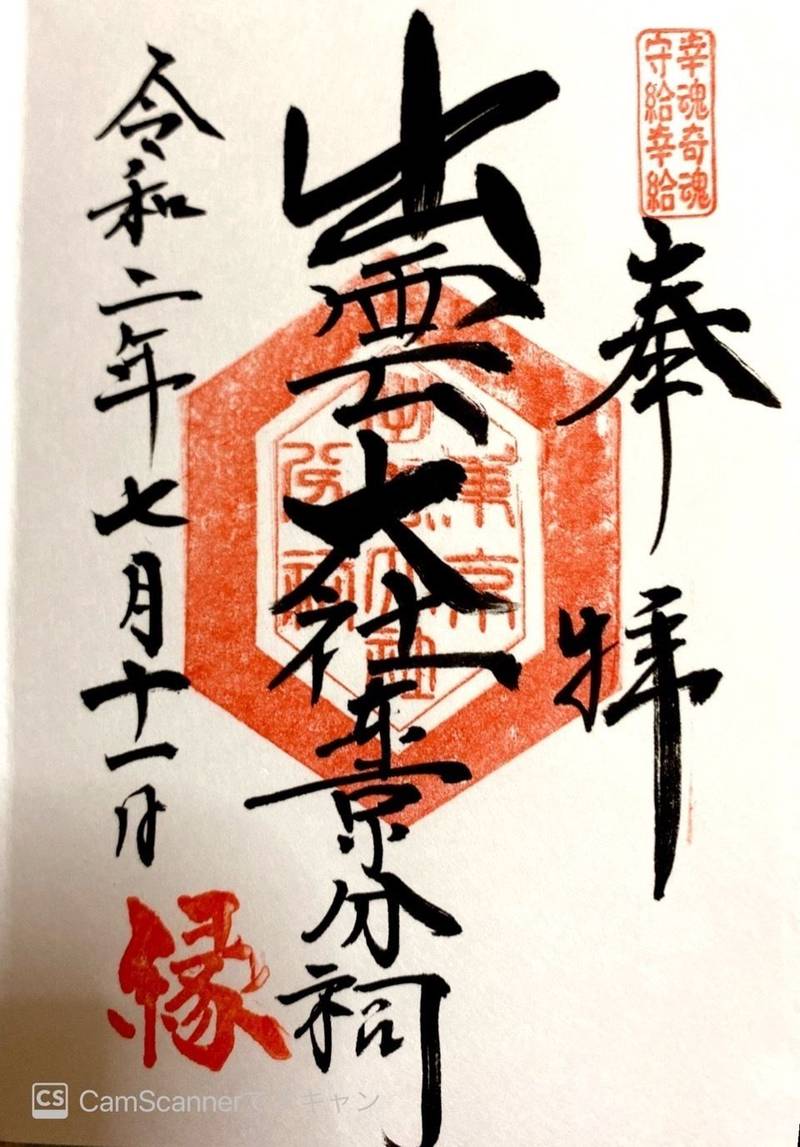 幸魂奇魂
守給幸給
奉拝
出雲大社東京分祠
令和二年七月十一日
縁
CamScannerでスキャン